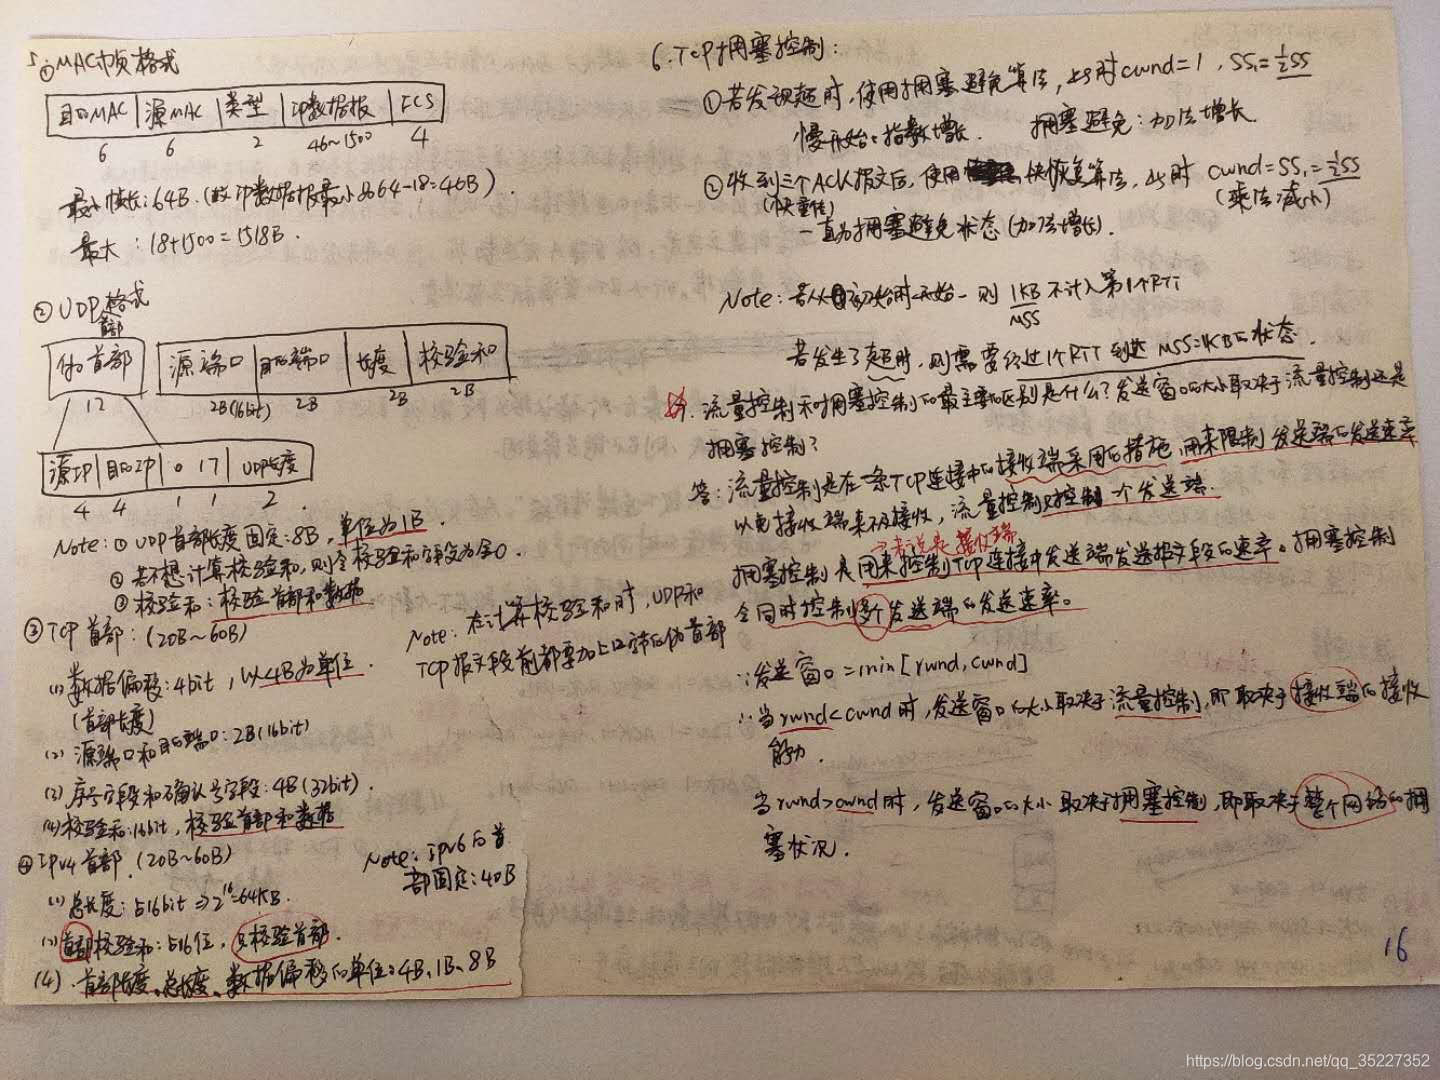 5.
① MAC帧格式
目的MAC | 源MAC | 类型 | IP数据报 | FCS
6 6 2 46~1500 4
最小帧长:64B.(故IP数据报最小为64-18=46B).
最大:18+1500=1518B.
② UDP格式
首部
伪首部 源端口 | 目的端口 | 长度 | 校验和
12 2B(16bit) 2B 2B 2B
源IP | 目的IP | 0 | 17 | UDP长度
4 4 1 1 2
Note: ① UDP首部长度固定:8B,单位为1B.
② 若不想计算校验和,则令校验和字段为全0.
③ 校验和:校验首部和数据
③ TCP首部:(20B~60B)
(1) 数据偏移:4bit,以4B为单位.
(首部长度)
(2) 源端口和目的端口:2B(16bit)
(3) 序号字段和确认号字段:4B(32bit).
(4) 校验和:16bit,校验首部和数据
Note:在计算校验和时,UDP和
TCP报文段前都要加上12字节的伪首部
④ IPv4首部.(20B~60B)
(1) 总长度:占16bit⇒2^16=64KB.
(2) 首部校验和:占16位,只校验首部.
(4). 首部长度、总长度、数据偏移的单位:4B、1B、8B
Note:IPv6的首
部固定:40B
6.TCP拥塞控制:
① 若发现超时,使用拥塞避免算法,此时cwnd=1,SS₁=½SS
慢开始:指数增长. 拥塞避免:加法增长.
② 收到三个ACK报文后,使用快恢复算法,此时 cwnd=SS₁=½SS
(快重传) (乘法减小)
一直为拥塞避免状态(加法增长).
Note:若从初始时开始,则 1KB 不计入第1个RTT
MSS
若发生了超时,则需要经过1个RTT到达MSS=1KB的状态.
流量控制和拥塞控制的最主要的区别是什么?发送窗口的大小取决于流量控制还是
拥塞控制?
答:流量控制是在一条TCP连接中的接收端采用的措施,用来限制发送端的发送速率
以免接收端来不及接收,流量控制只控制一个发送端.
接收端
拥塞控制是用来控制TCP连接中发送端发送报文段的速率。拥塞控制
会同时控制多个发送端的发送速率。
∵发送窗口=min[rwnd,cwnd]
∴当rwnd<cwnd时,发送窗口的大小取决于流量控制,即取决于接收端的接收
能力.
当rwnd>cwnd时,发送窗口的大小取决于拥塞控制,即取决于整个网络的拥
塞状况.
16
https://blog.csdn.net/qq_35227352